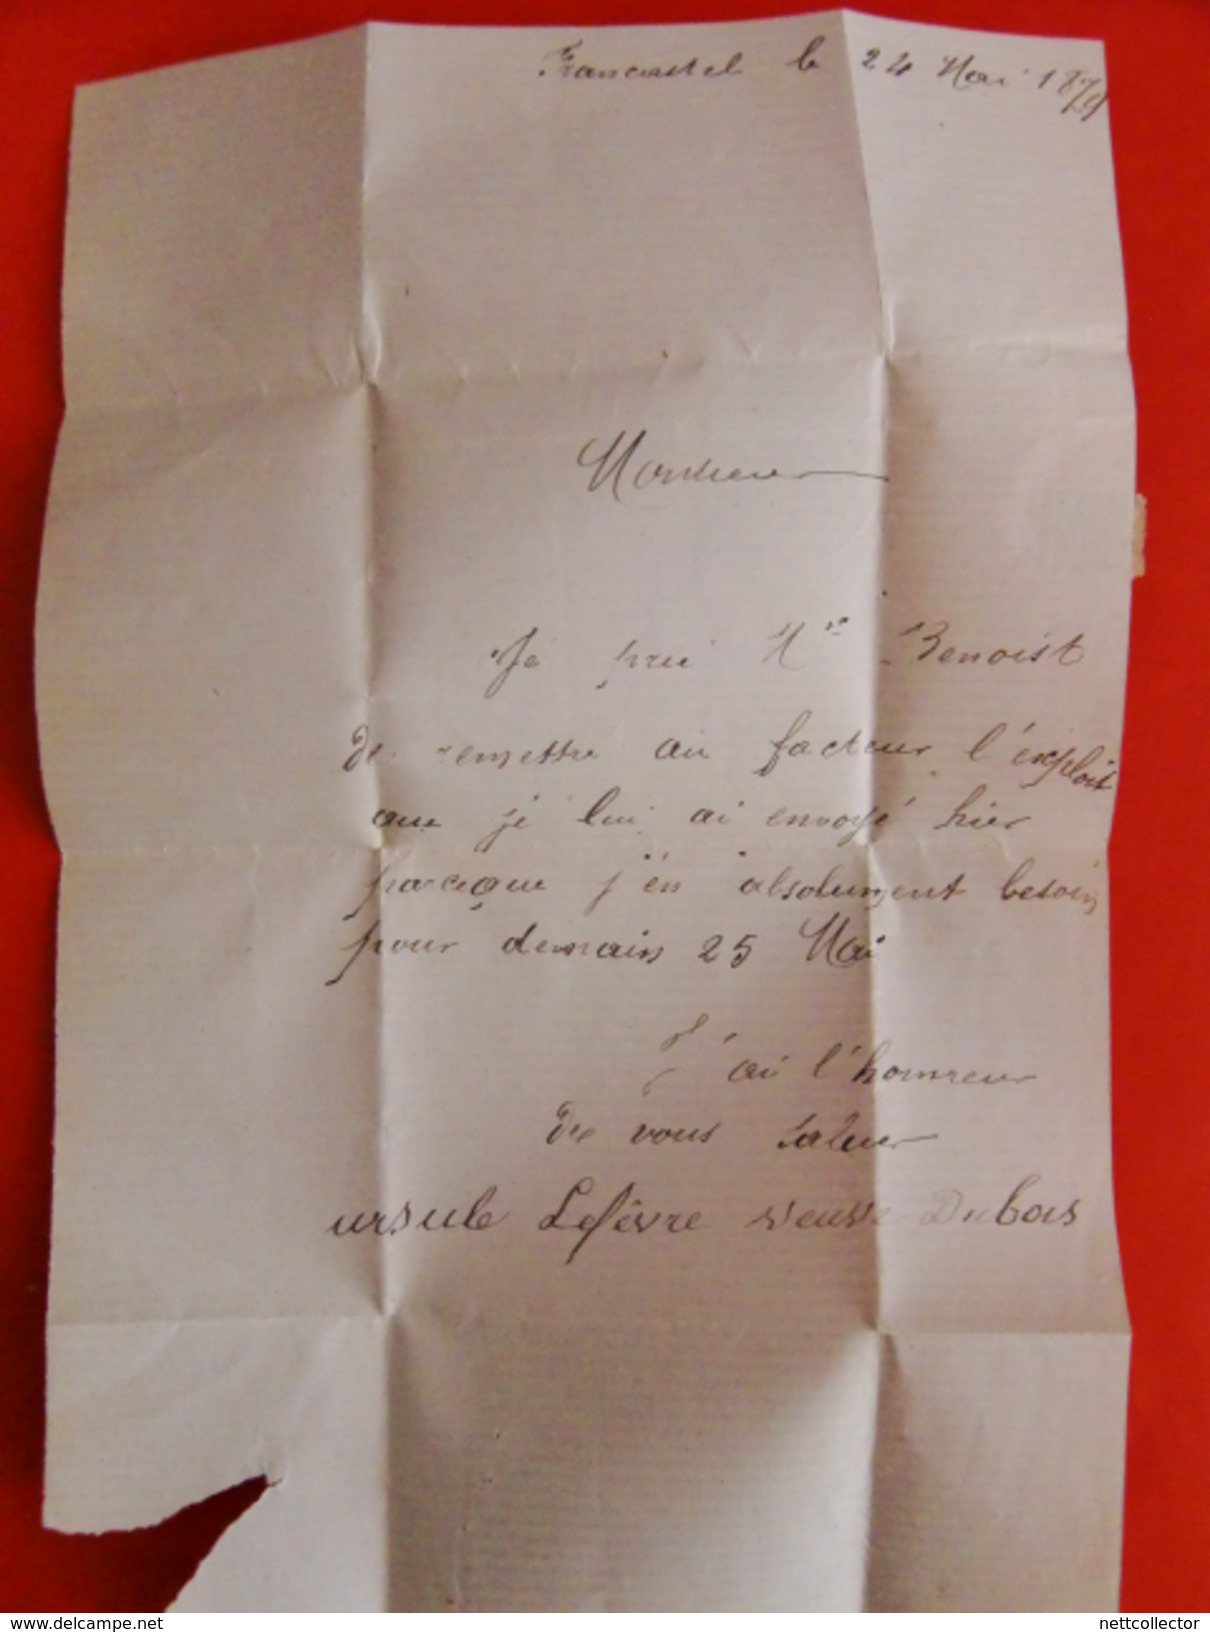 Francastel le 24 Mai 1879
Monsieur
Je prie Mr Benoist
de remettre au facteur l'exploit
que je lui ai envoyé hier
parceque j'en absolument besoin
pour demain 25 Mai
J'ai l'honneur
de vous saluer
ursule Lefèvre veuve Dubois
www.delcampe.net
nettcollector